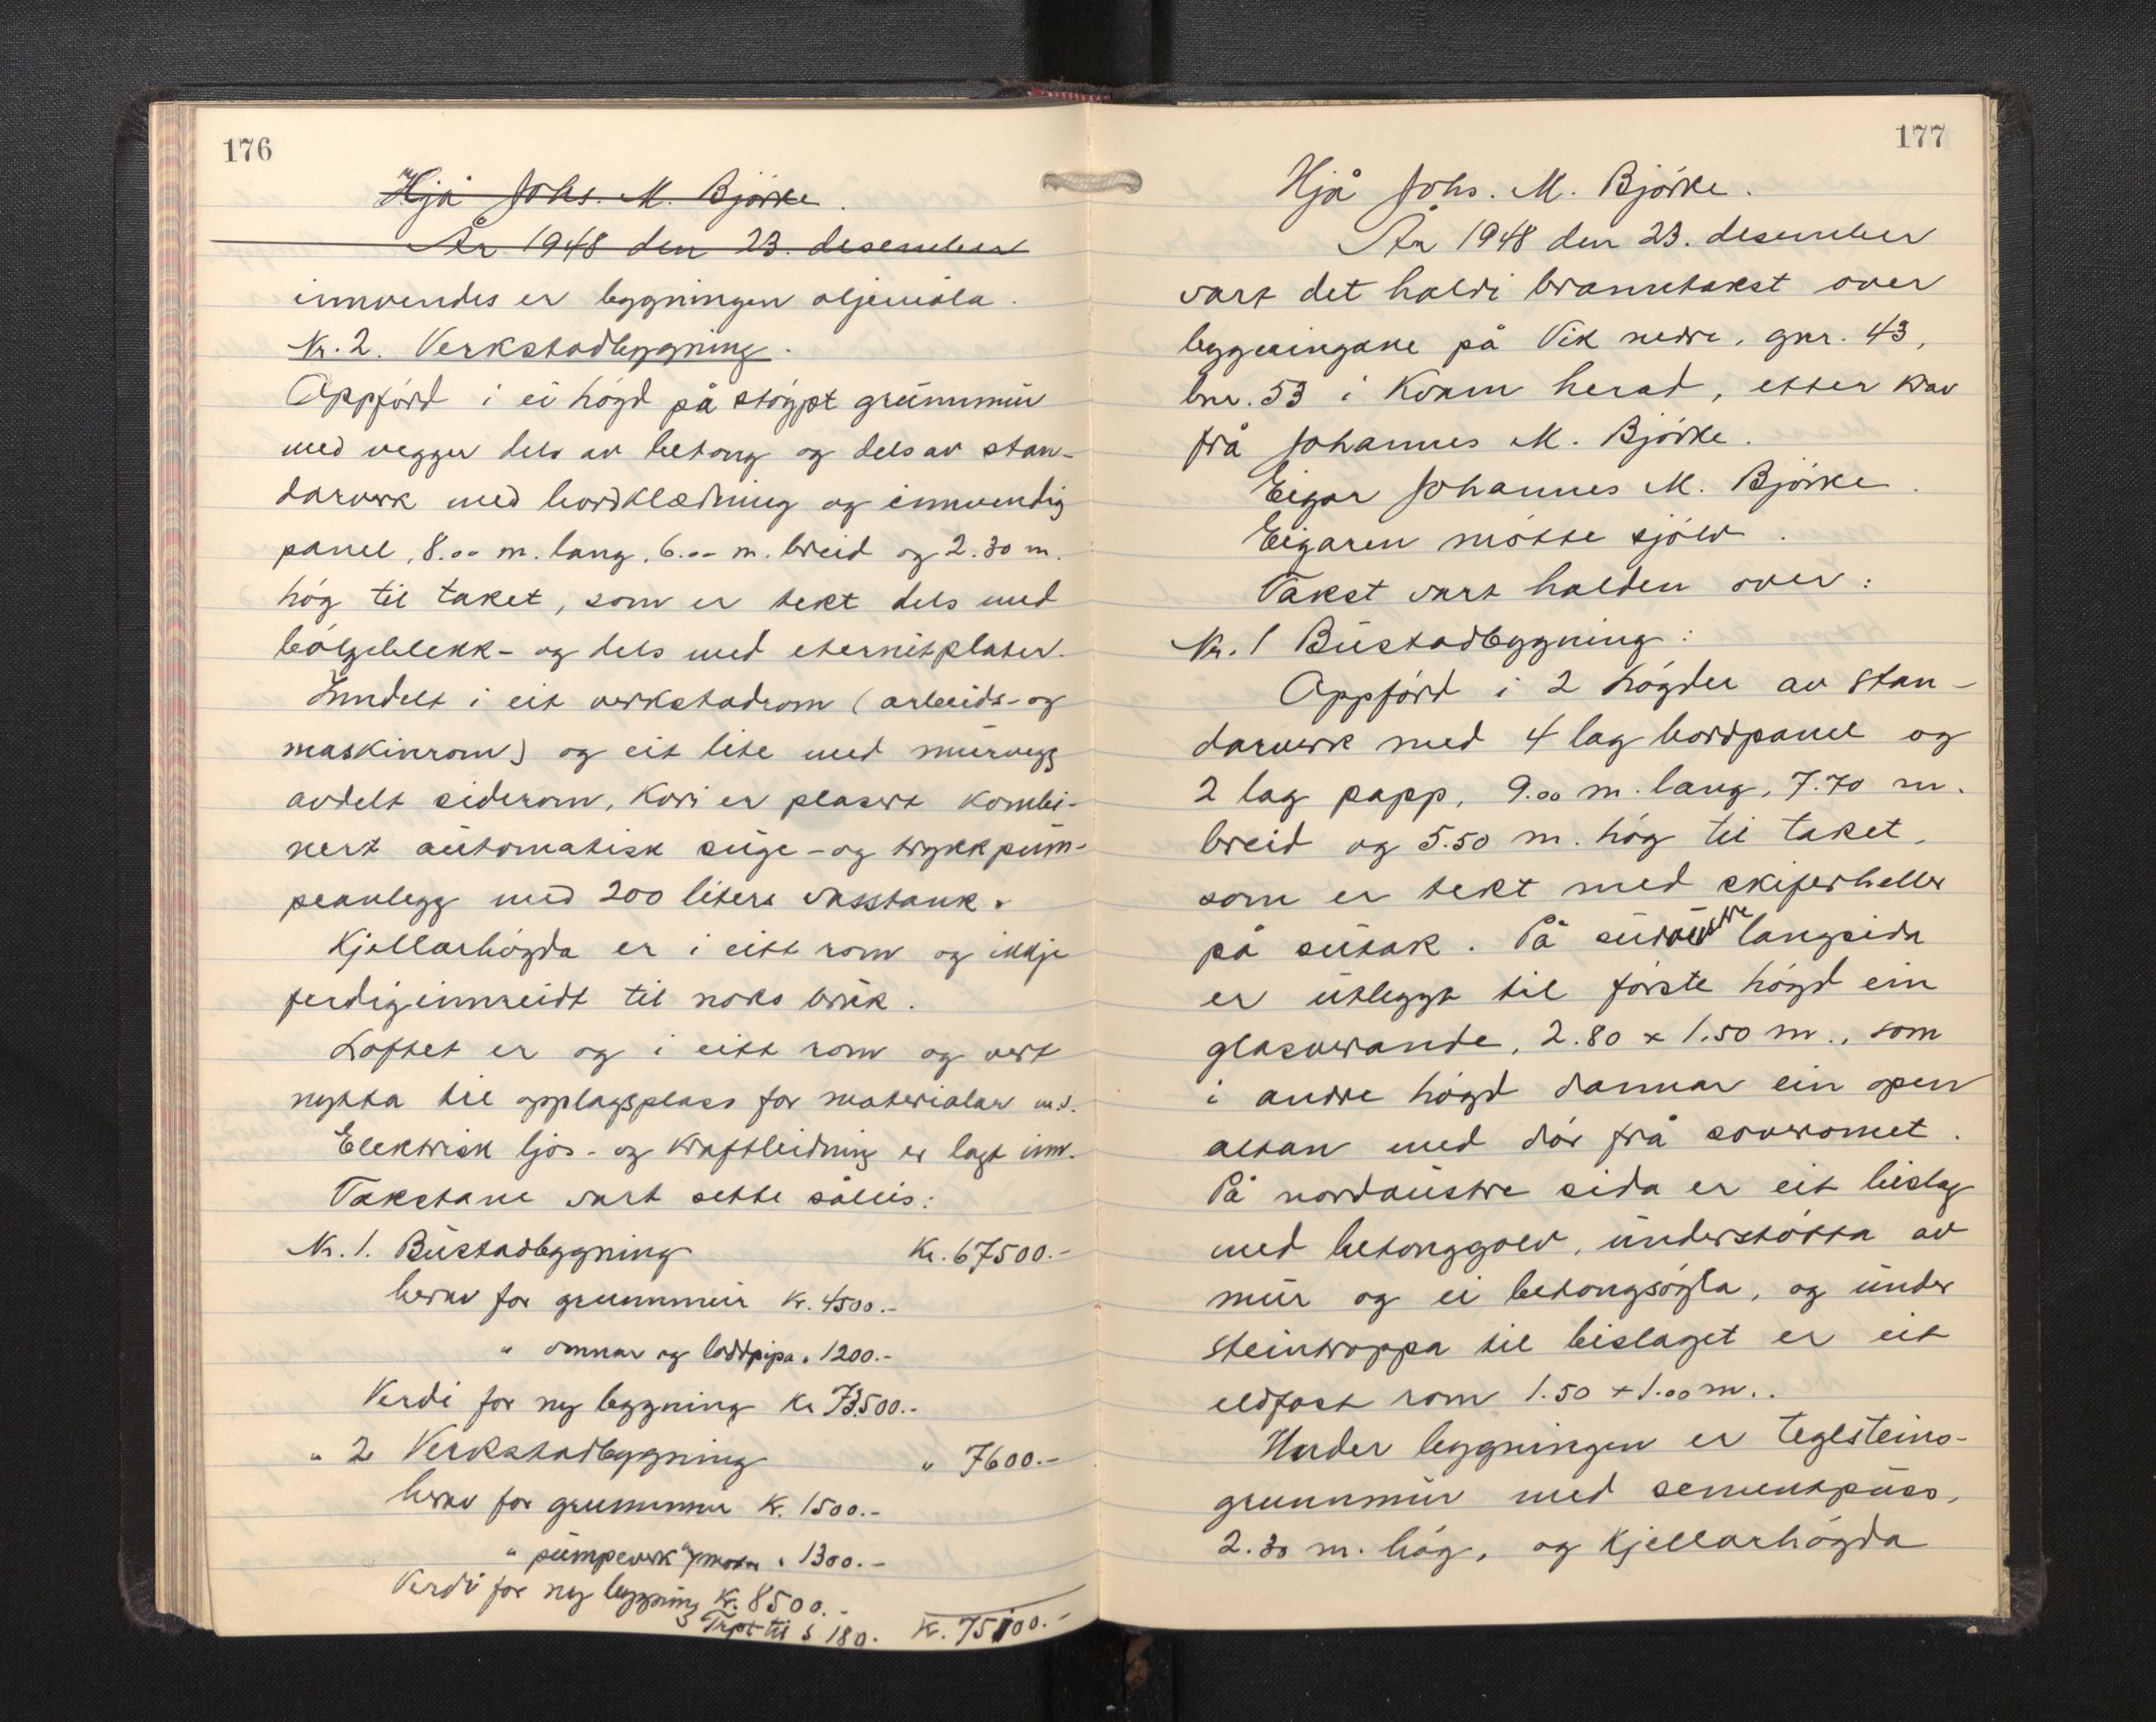 176
Hjå Johs. M. Bjørke.
År 1948 den 23. desember
innvendes er bygningen oljemåla.
Nr. 2. Verkstadbygning.
Oppførd i ei høgd på støypt grunnmur
med vegger dels av betong og dels av stan-
darverk med bordklædning og innvendig
panel, 8.00 m. lang, 6.00 m. breid og 2.30 m.
høg til taket, som er tekt dels med
bølgeblekk- og dels med eternitplater.
Inndelt i eit verkstadrom (arbeids- og
maskinrom) og eit lite med murvegg
avdelt siderom, kori er plasert kombi-
nert automatisk suge- og trykkpum-
peanlegg med 200 liters vasstank.
Kjellarhøgda er i eitt rom og ikkje
ferdiginnreidt til noko bruk.
Loftet er og i eitt rom og vert
nytta til opplagsplass for materialar m.v.
Elektrisk ljos- og kraftleidning er lagt inn.
Takstane vart sette såleis:
Nr. 1. Bustadbygning Kr. 67500.-
herav for grunnmur Kr. 4500.-
" omnar og loddpipa " 1200.-
Verdi for ny bygning Kr 73500.-
" 2 Verkstadbygning " 7600.-
herav for grunnmur Kr. 1500.-
" pumpeverk m/motor " 1300.-
Verdi for ny bygning Kr. 8500.-
Trpt til s 180. Kr. 75100.-
177
Hjå Johs. M. Bjørke.
År 1948 den 23. desember
vart det haldi branntakst over
bygningane på Vik nedre, gnr. 43,
bnr. 53 i Kvam herad, etter krav
frå Johannes M. Bjørke.
Eigar Johannes M. Bjørke.
Eigaren møtte sjølv.
Takst vart halden over:
Nr. 1 Bustadbygning:
Oppførd i 2 høgder av stan-
darverk med 4 lag bordpanel og
2 lag papp, 9.00 m. lang, 7.70 m.
breid og 5.50 m. høg til taket,
som er tekt med skiferheller
på sutak. På sudaustre langsida
er utbygt til første høgd ein
glasverande, 2.80 x 1.50 m., som
i andre høgd dannar ein open
altan med dør frå soveromet.
På nordaustre sida er eit bislag
med betonggolv, understøtta av
mur og ei betongsøyla, og under
steintroppa til bislaget er eit
eldfast rom 1.50 x 1.00 m..
Under bygningen er teglsteins-
grunnmur med sementpuss,
2.30 m. høg, og kjellarhøgda